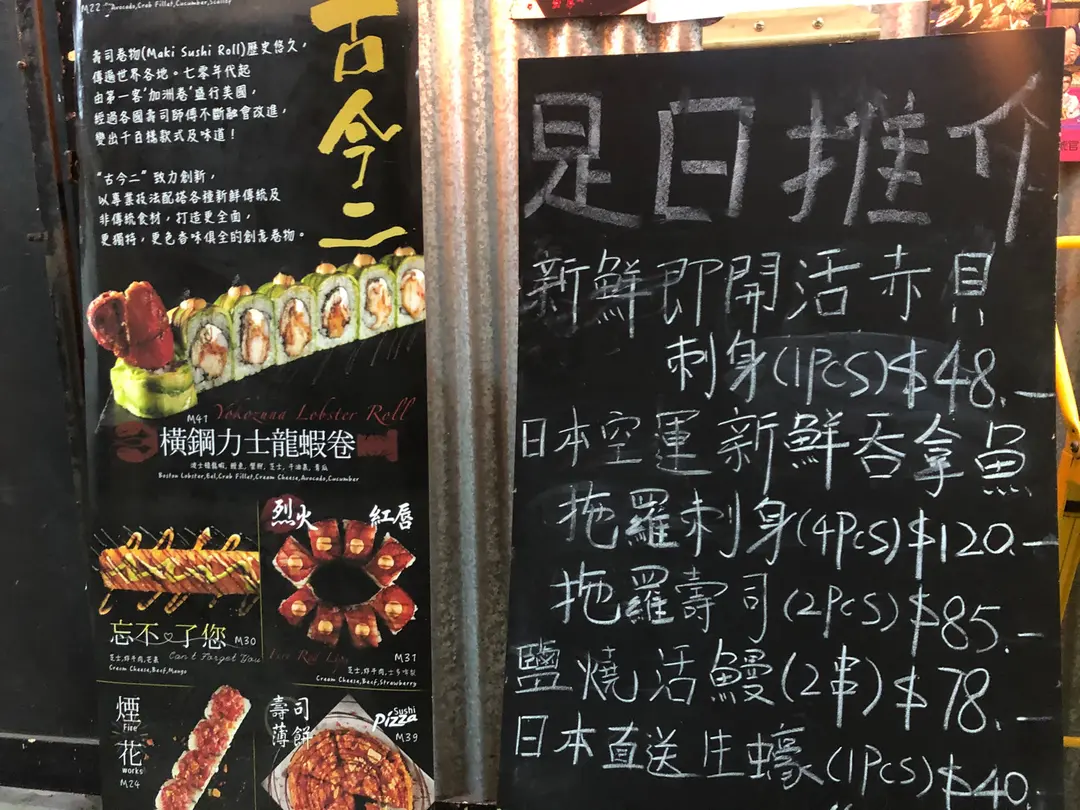 M22 Avocado,Crab Fillet,Cucumber,Scallop
古今二
壽司卷物(Maki Sushi Roll)歷史悠久，
傳遍世界各地。七零年代起
由第一客'加洲卷'盛行美國，
經過各國壽司師傅不斷融會改進，
變出千百樣款式及味道！
"古今二" 致力創新，
以專業技法配搭各種新鮮傳統及
非傳統食材，打造更全面，
更獨特，更色香味俱全的創意卷物。
M41 Yokozuna Lobster Roll
橫鋼力士龍蝦卷
波士頓龍蝦, 鰻魚, 蟹柳, 芝士, 牛油果, 青瓜
Boston Lobster,Eel,Crab Fillet,Cream Cheese,Avocado,Cucumber
忘不了您 M30
Can't Forget You
芝士,炸牛肉,芒果
Cream Cheese,Beef,Mango
烈火 紅唇
M31
芝士,炸牛肉,士多啤梨
Cream Cheese,Beef,Strawberry
煙花
Fire works
M24
壽司薄餅
Sushi Pizza
M39
是日推介
新鮮即開活赤貝
刺身(1PCS)$48.-
日本空運新鮮吞拿魚
拖羅刺身(4PCS)$120.-
拖羅壽司(2PCS)$85.-
鹽燒活鰻(2串)$78.-
日本直送生蠔(1PCS)$40